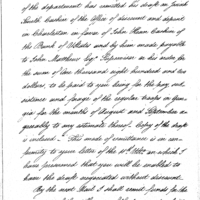 of the department has remitted his draft on Jacob
Smith Cashier of the Office of discount and deposit
in Charleston in favor of John Ohear Cashier of
the Bank of States and by him made payable
to John Matthews Esq. Supervisor in his order for
the sum of One thousand eight hundred and ten
dollars, to be paid to you being for the pay sub
sistence and forage of the regular troops in Geor
gia for the months of August and September a
greeably to my estimate thereof. Copy of the draft
is enclosed. This mode of remittance is in con
formity to your letter of the 11th Ulto. in which I
have presumed that you will be enabled to
have the draft negociated without discount.
By the next Post I shall remit funds for the